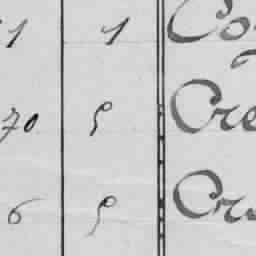 1 1 Co
70 5 Cre
6 5 Cr